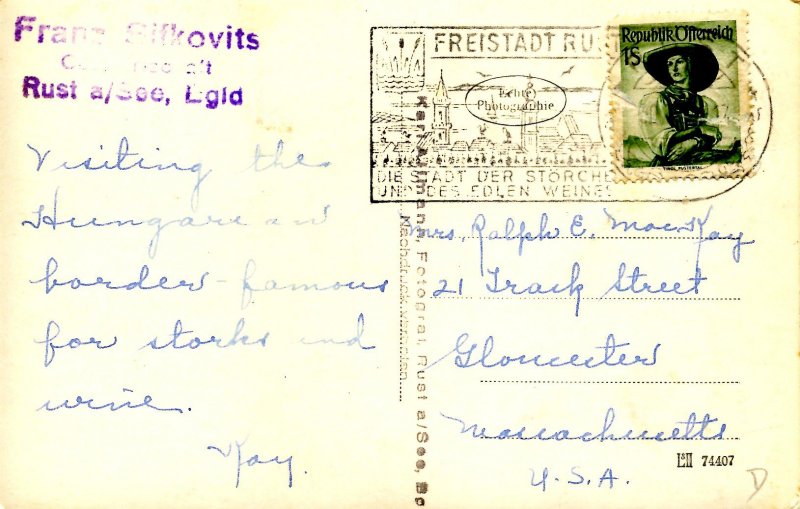 Franz Sifkovits
Rust a/See, Bgld
FREISTADT RUST
Echte
Photographie
DIE STADT DER STÖRCHE
UND DES EDLEN WEINES
Republik Österreich
1S
TIROL PUSTERTAL
Visiting the
Hungarian
border - famous
for storks and
wine.
Kay.
Fotograf, Rust a/See,
Mrs. Ralph E. MacKay
21 Track Street
Gloucester
Massachusetts
U.S.A.
L&II 74407
D